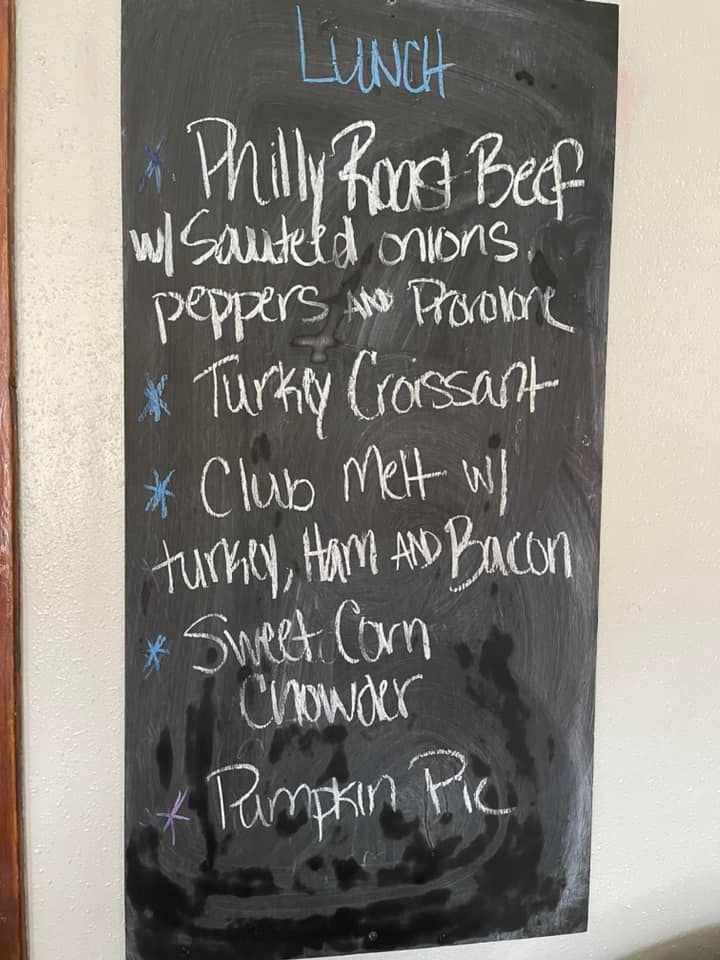 LUNCH
* Philly Roast Beef
w/ Sauteed onions,
peppers AND Provolone
* Turkey Croissant
* Club Melt w/
turkey, Ham AND Bacon
* Sweet Corn
Chowder
* Pumpkin Pie